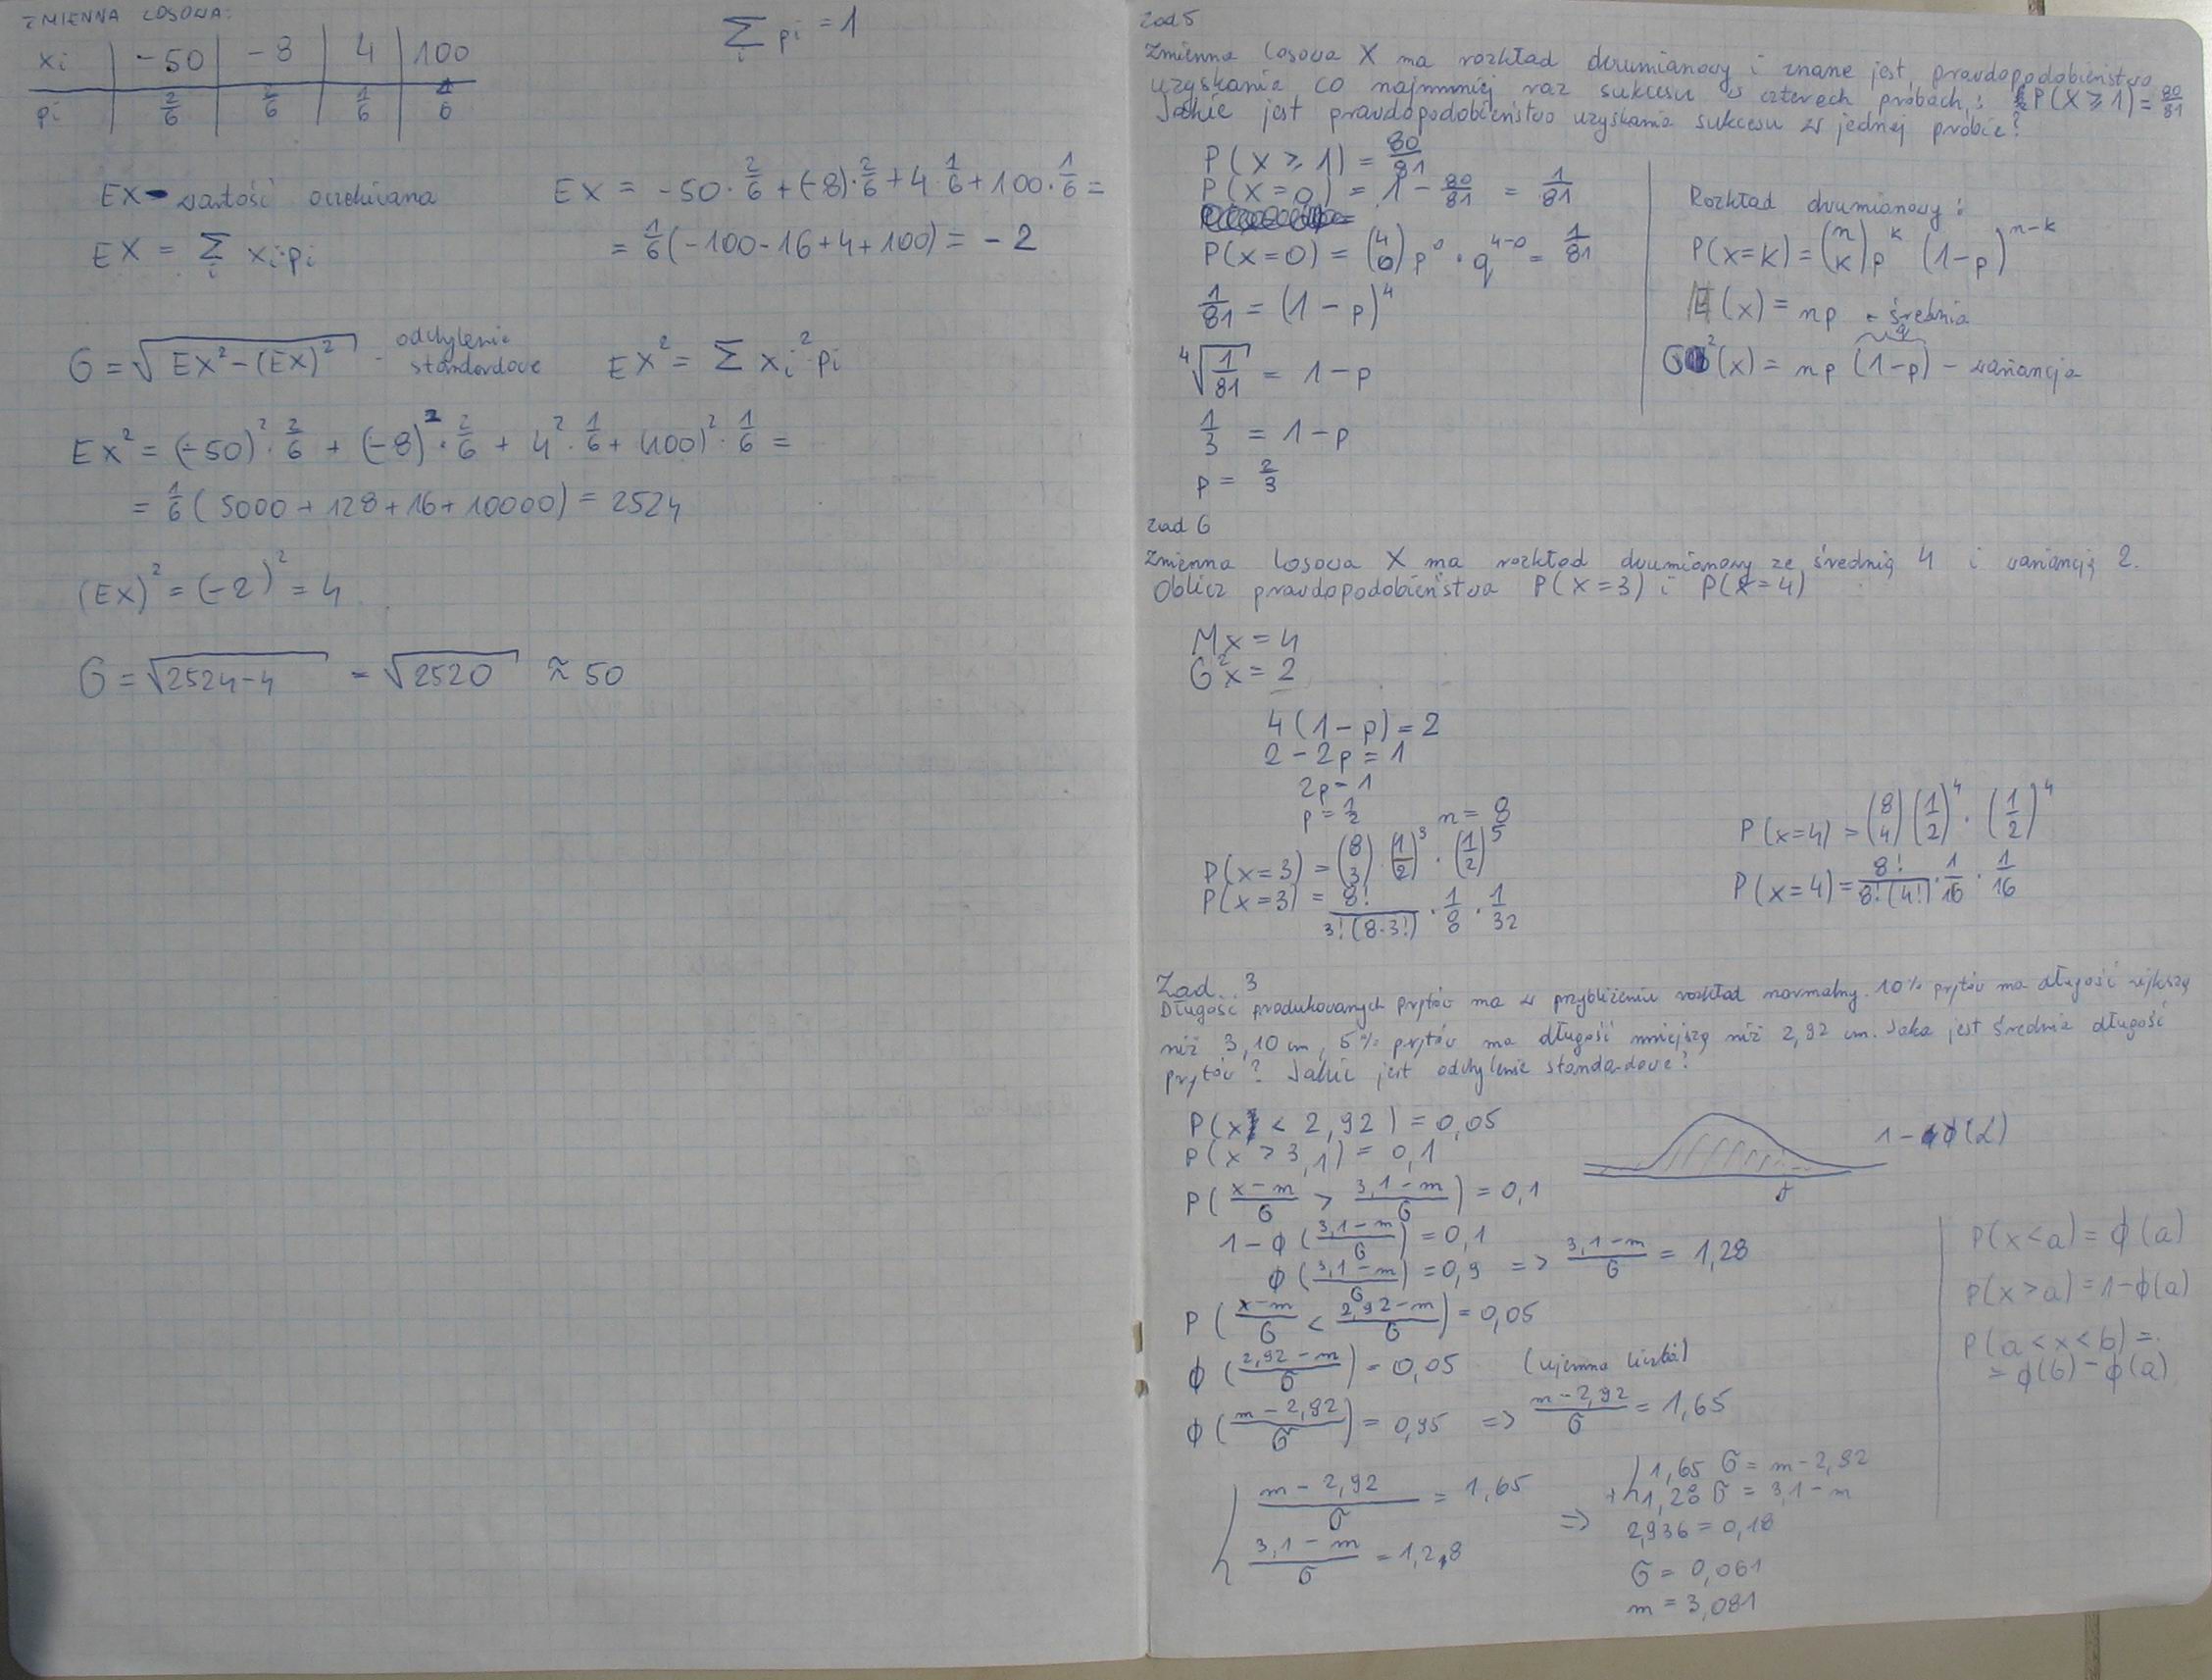 ZMIENNA LOSOWA:
xi | -50 | -8 | 4 | 100
pi | 2/6 | 2/6 | 1/6 | 1/6
∑i pi = 1
EX - wartość oczekiwana
EX = ∑i xi·pi
EX = -50·2/6 + (-8)·2/6 + 4·1/6 + 100·1/6 =
= 1/6(-100-16+4+100) = -2
G = √(EX² - (EX)²) - odchylenie standardowe
EX² = ∑ xi²·pi
EX² = (-50)²·2/6 + (-8)²·2/6 + 4²·1/6 + (100)²·1/6 =
= 1/6 (5000+128+16+10000) = 2524
(EX)² = (-2)² = 4
G = √(2524-4) = √2520 ≈ 50
zad 5
Zmienna losowa X ma rozkład dwumianowy i znane jest prawdopodobieństwo
uzyskania co najmniej raz sukcesu w czterech próbach: P(X ≥ 1) = 80/81
Jakie jest prawdopodobieństwo uzyskania sukcesu w jednej próbie?
P(X ≥ 1) = 80/81
P(X=0) = 1 - 80/81 = 1/81
P(X=0) = (4 0) p⁰ · q⁴⁻⁰ = 1/81
1/81 = (1-p)⁴
⁴√(1/81) = 1-p
1/3 = 1-p
p = 2/3
Rozkład dwumianowy:
P(X=k) = (n k) p^k (1-p)^(n-k)
E(x) = np - średnia
q
G²(x) = np (1-p) - wariancja
zad 6
Zmienna losowa X ma rozkład dwumianowy ze średnią 4 i wariancją 2.
Oblicz prawdopodobieństwa P(X=3) i P(X=4)
Mx = 4
G²x = 2
4(1-p) = 2
2-2p = 1
2p = 1
p = 1/2 n = 8
P(x=3) = (8 3)·(1/2)³·(1/2)⁵
P(x=3) = 8!/3!(8-3!)·1/8·1/32
P(x=4) = (8 4)(1/2)⁴·(1/2)⁴
P(x=4) = 8!/8!(4!)·1/16·1/16
Zad. 3
Długość produkowanych prętów ma w przybliżeniu rozkład normalny. 10% prętów ma długość większą
niż 3,10 cm, 5% prętów ma długość mniejszą niż 2,92 cm. Jaka jest średnia długość
prętów? Jakie jest odchylenie standardowe?
P(x < 2,92) = 0,05
P(x > 3,1) = 0,1
1-ϕ(L)
P((x-m)/G > (3,1-m)/G) = 0,1
1-ϕ((3,1-m)/G) = 0,1
ϕ((3,1-m)/G) = 0,9 => (3,1-m)/G = 1,28
P((x-m)/G < (2,92-m)/G) = 0,05
ϕ((2,92-m)/G) = 0,05 (ujemna liczba)
ϕ((m-2,92)/G) = 0,95 => (m-2,92)/G = 1,65
P(x<a) = ϕ(a)
P(x>a) = 1-ϕ(a)
P(a<x<b) =
= ϕ(b)-ϕ(a)
(m-2,92)/G = 1,65
(3,1-m)/G = 1,28
=>
1,65 G = m-2,92
+ 1,28 G = 3,1-m
2,93G = 0,18
G = 0,061
m = 3,081